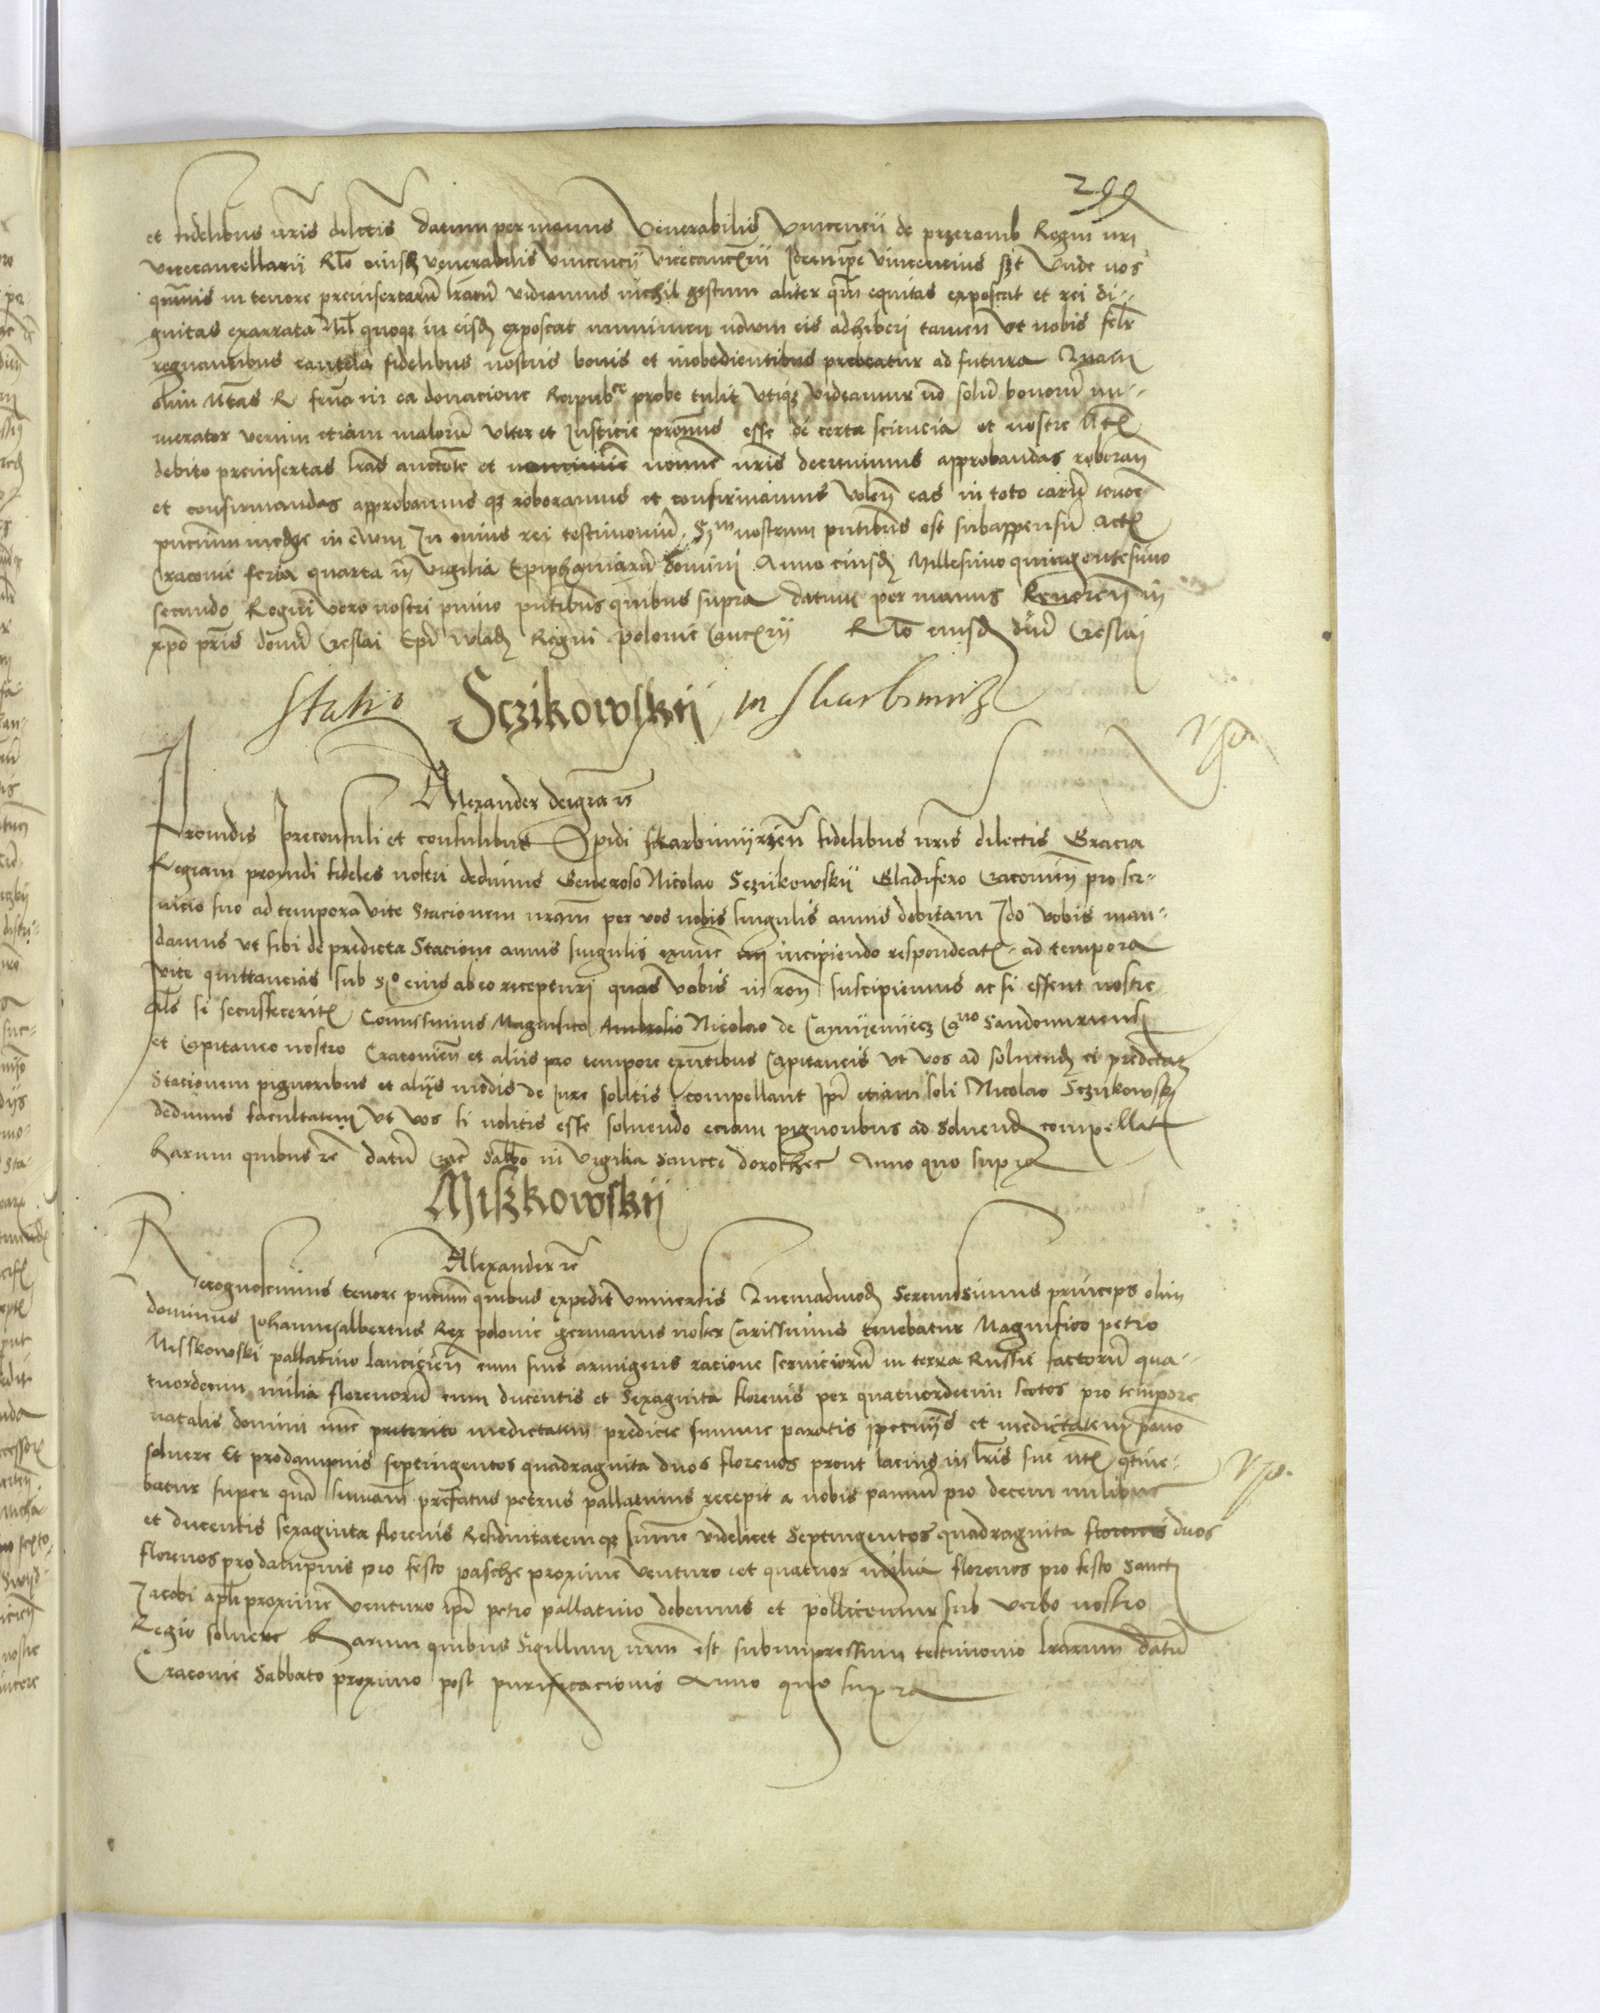 299
et fidelibus nris dilectis Datum per manus Venerabilis Vincencii de przeramb Regni nri
vicecancellarii Rlo eiusd venerabilis vincencii vicecancrii Idemqe Vincencius szt Unde nos
quamvis in tenore preinsertarum lrarum vidiamus nichil gestum aliter qm equitas exposcat et rei di-
gnitas exarrata Nil quoqz in eisd exposcat munimen novum eis adhiberi tamen ut nobis felr
regnantibus cautela fidelibus nostris bonis et inobedientibus prebeatur ad futura Quam
olim Mtas R frna in ea donacione Reipubce probe tulit utiqz videamur no solu bonoru nu-
merator verum etiam maloru ulter et Justicie pronus esse de certa sciencia et nostre
debito preinsertas lras auctote et nomine nris decrevimus approbandas roboran
et confirmandas approbamus qz roboramus et confirmamus volen eas in toto earu tenore
pntium medte in evum In cuius rei testimoniu Sim nostrum pntibus est subappensu Act
Cracovie feria quarta in vigilia Epiphaniaru Domini Anno eiusd Millesimo quingentesimo
secundo Regni vero nostri primo pntibus quibus supra Datum per manus Reveren in
xpo pris domi Creslai Epi wlad Regni polonie Cancrii Rlo eiusd dni Creslai
Statio Sczikowskij in Skarbimirz
Alexander dei gra rs
Providis preconsuli et consulibus Opidi skarbimijrzen fidelibus nris dilectis Gracia
Regiam providi fideles nostri dedimus Generoso Nicolao Sczikowskij Gladifero Cracovien pro ser-
vicio suo ad tempora vite Stacionem nram per vos nobis singulis annis debitam Ido vobis man-
damus ut sibi de predicta Stacione annis singulis exnunc incipiendo respondeat ad tempora
vite quittancias sub Slo eius ab eo recepturi quas vobis in ron suscipiemus ac si essent nostre
als si secusfecerit Comisimus Magnifico Ambrosio Nicolao de Camyenyecz Cno Sandomirien
et Capitaneo nostro Cracovien et aliis pro tempore exntibus Capitaneis ut vos ad solvend ei predictat
Stacionem pignoribus et alijs modis de iure solitis compellant Ipi etiam soli Nicolao Sczikowskij
dedimus facultatem ut vos si nolitis esse solvendo eciam pignoribus ad solvend compellat
harum quibus rc datu Crac Sabbo in vigilia Sancte dorothee Anno quo supra
Miszkowskij
Alexander rc
Recognoscimus tenore pntium quibus expedit universis Quemadmod Serenissimus princeps olim
dominus Johannesalbertus Rex polonie germanus noster Carissimus tenebatur Magnifico petro
Misskowski pallatino lancicien cum suis armigeris racione servicioru in terra Russie factoru qua-
tuordecim milia florenoru cum ducentis et sexaginta florenis per quatuordecim scotos pro tempore
natalis domini nunc preterito medietatem predicte summe paratis ipecunijs et medietatem panno
solvere Et prodampnis septingentos quadraginta duos florenos prout lacius in lris sue mt qtine-
batur super qua sumam prefatus petrus pallatinus recepit a nobis pannum pro decem milibus
et ducentis sexaginta florenis Residuitatemqz sume videlicet Septingentos quadraginta florenos duos
florenos pro dampnis pro festo pasche proxime venturo et quatuor milia florenos pro festo Sancti
Jacobi apli proxime venturo ipi petro pallatino debemus et pollicemur sub verbo nostro
Regio solvere Harum quibus Sigillum nrm est subimpressum testimonio lrarum datu
Cracovie Sabbato proximo post purificacionis Anno quo supra